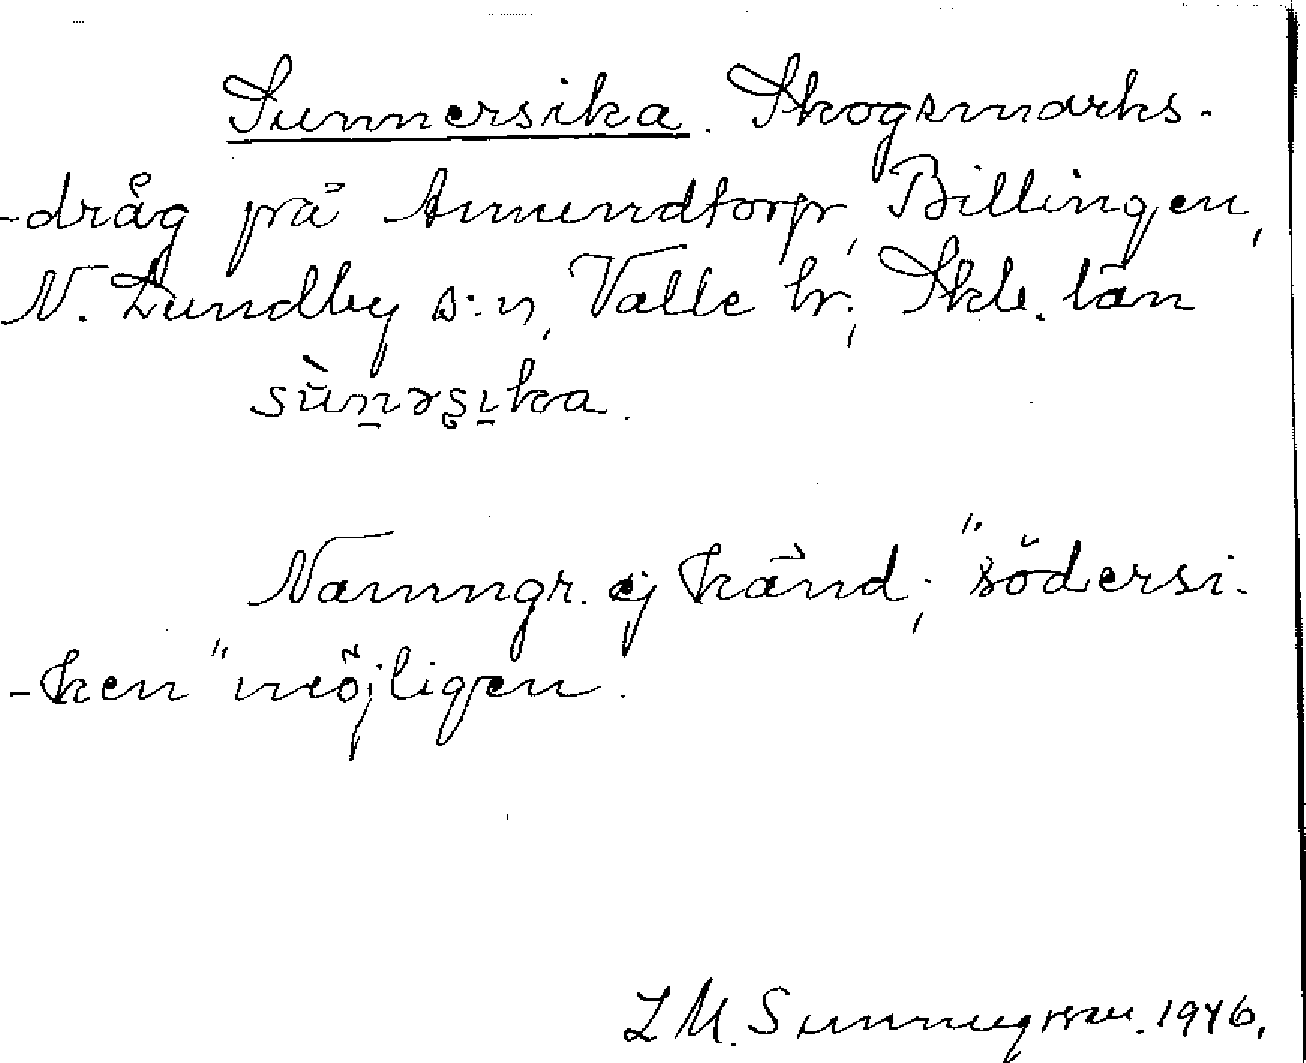 Sunnersika. Skogsmarks-
-dråg på Amundtorp, Billingen,
N. Lundby s:n, Valle hr., Skb. län
sùnərsika.
Namngr. ej känd; "södersi-
-ken" möjligen.
L M. Sunnegren. 1946.